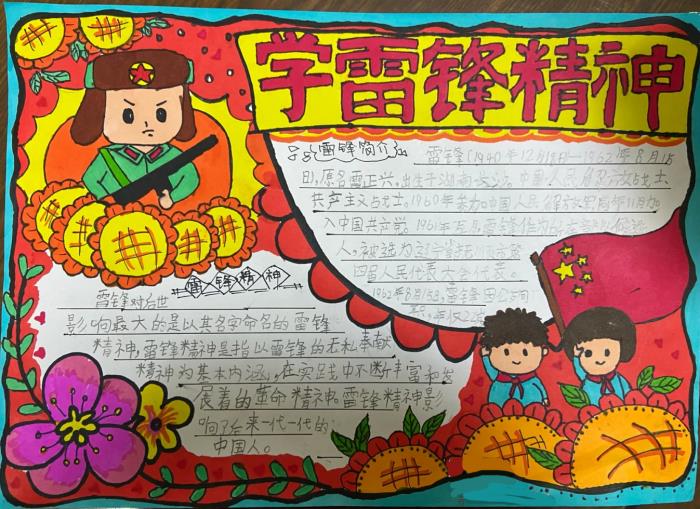 学雷锋精神
雷锋简介
雷锋(1940年12月18日—1962年8月15
日),原名雷正兴,出生于湖南长沙,中国人民解放战士、
共产主义战士,1960年参加中国人民解放军同年11月加
入中国共产党。1961年
人,被选为抚顺市第
四届人民代表大会代表。
1962年8月15日,雷锋因公
年仅22
雷锋精神
雷锋对后世
影响最大的是以其名字命名的雷锋
精神,雷锋精神是指以雷锋的无私奉献
精神为基本内涵,在实践中不断丰富和发
展着的革命精神。雷锋精神影
响了后来一代一代的
中国人。